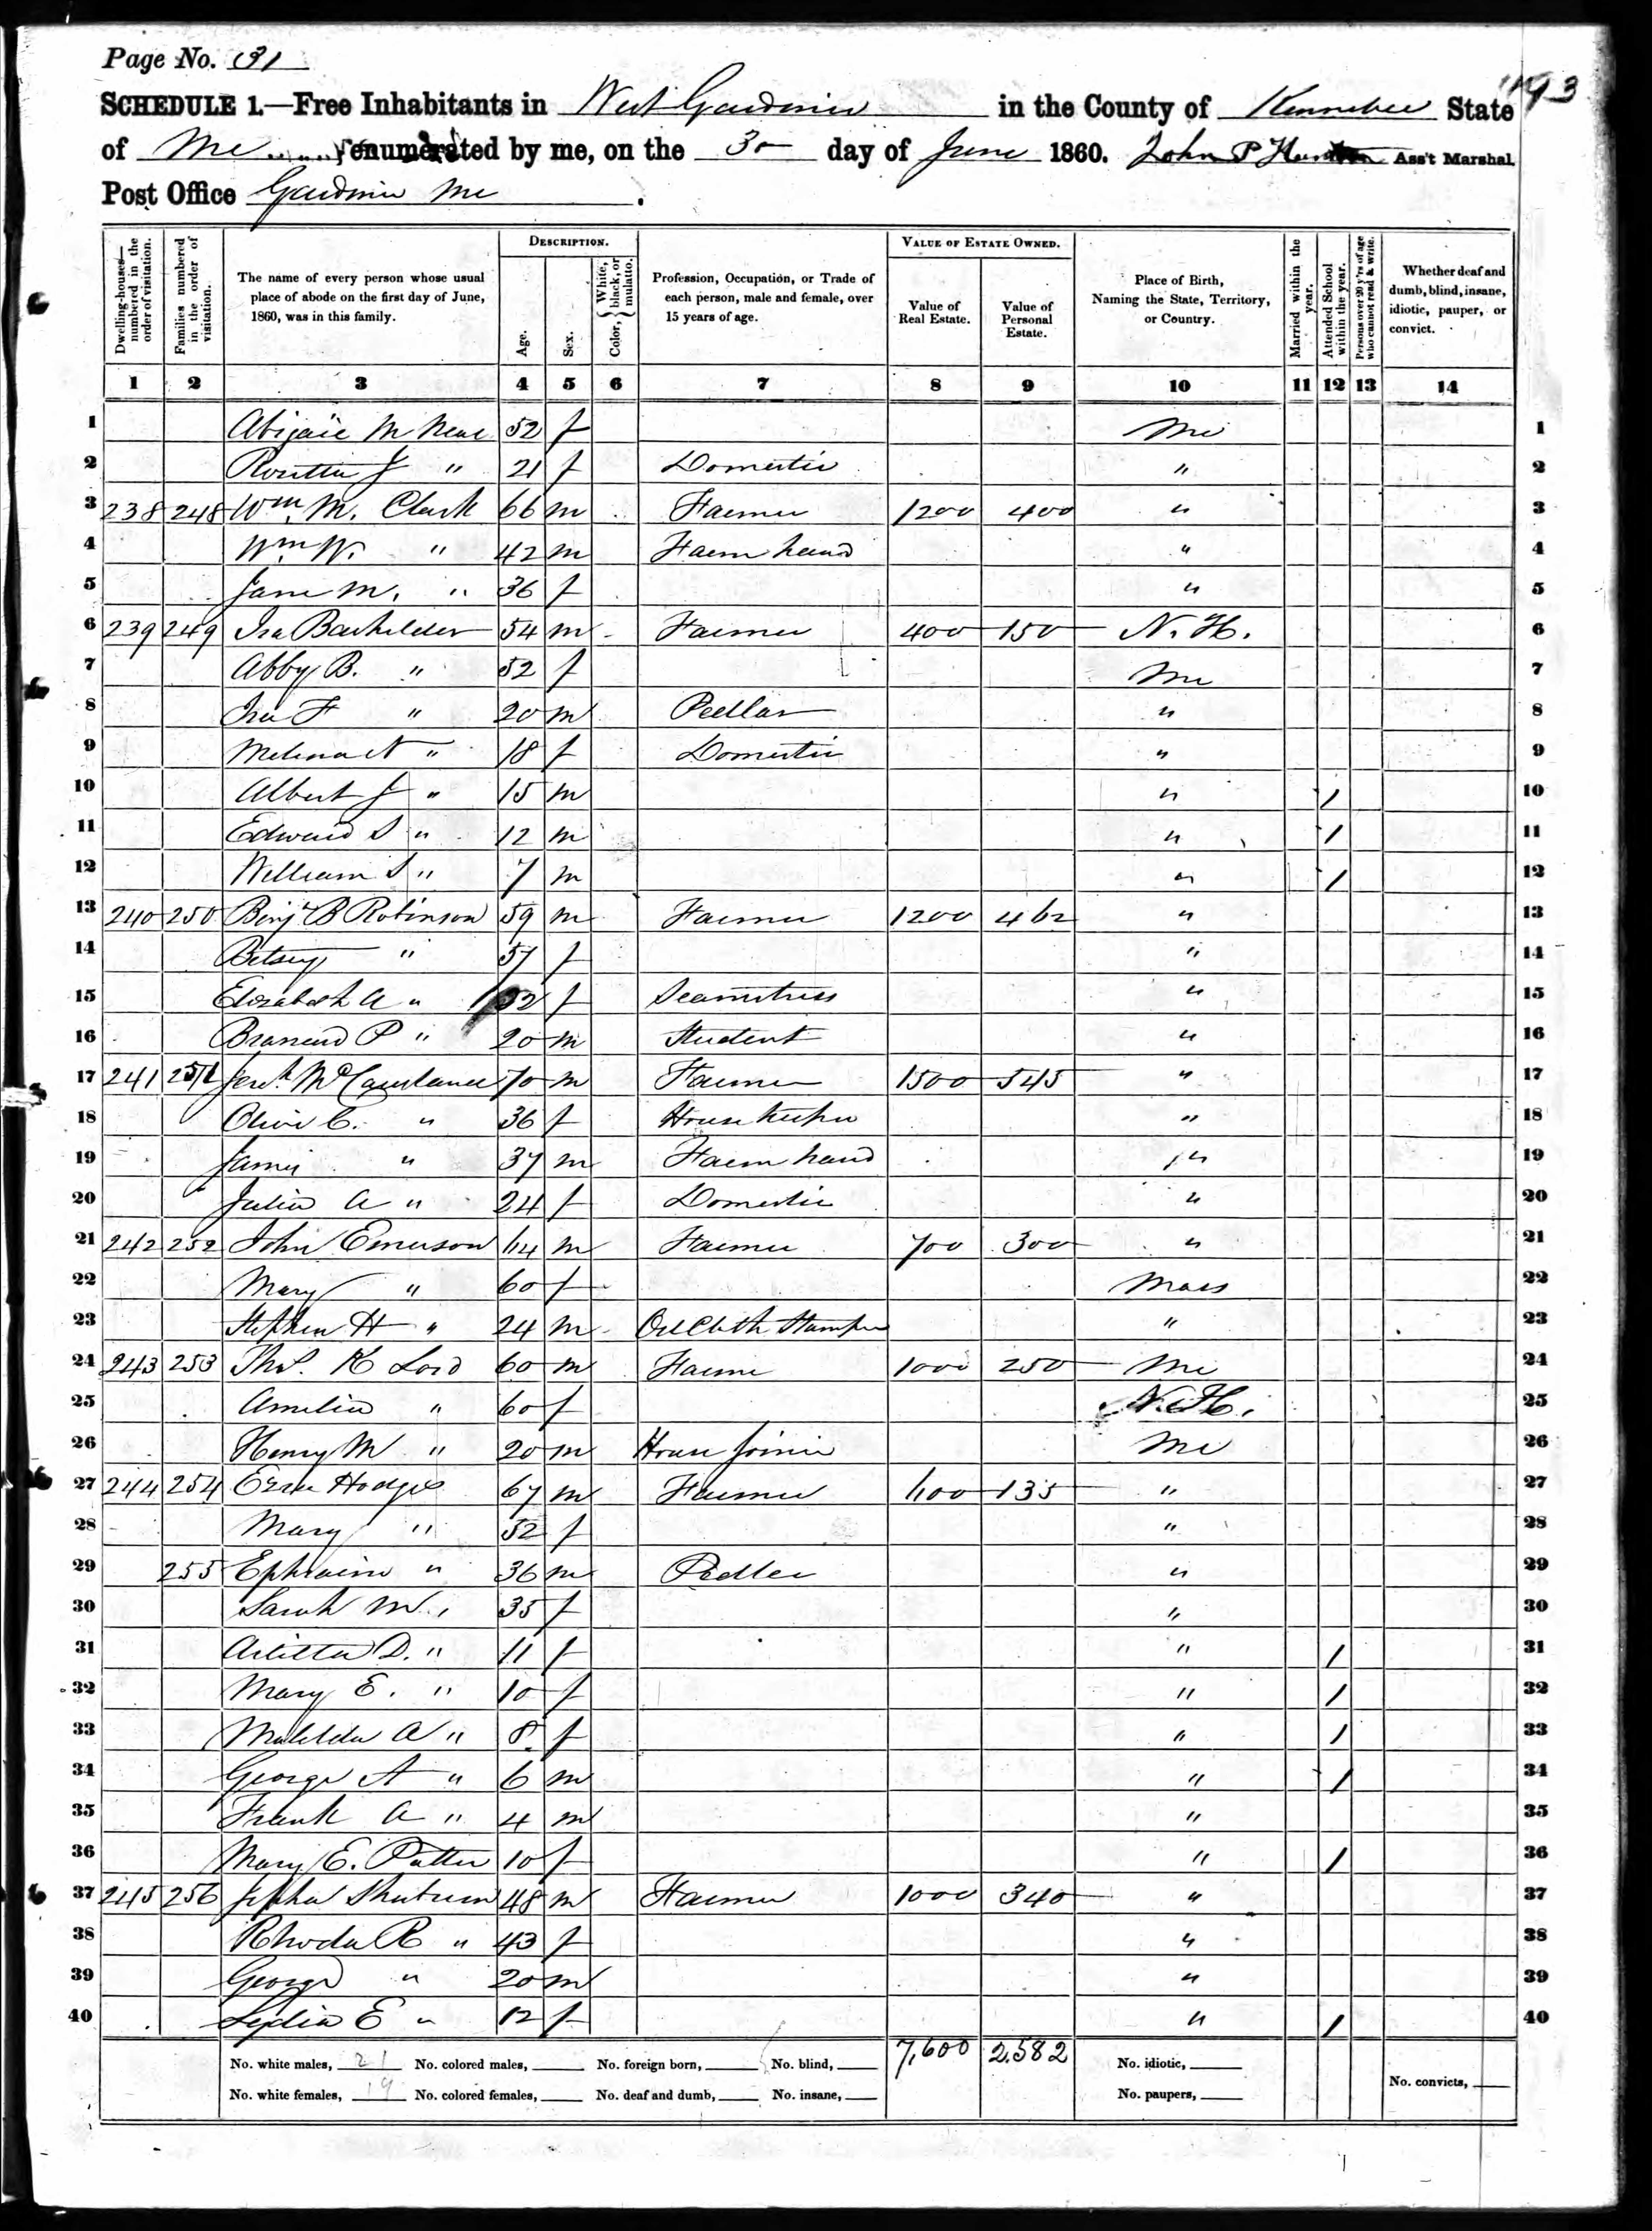 Page No. 31
193
SCHEDULE 1.—Free Inhabitants in West Gardiner in the County of Kennebec State
of Me enumerated by me, on the 30 day of June 1860. John P Ass't Marshal
Post Office Gardiner Me.
Dwelling-houses—numbered in the order of visitation.
Families numbered in the order of visitation.
The name of every person whose usual place of abode on the first day of June, 1860, was in this family.
DESCRIPTION.
Age.
Sex.
Color, { White, black, or mulatto.
Profession, Occupation, or Trade of each person, male and female, over 15 years of age.
VALUE OF ESTATE OWNED.
Value of Real Estate.
Value of Personal Estate.
Place of Birth, Naming the State, Territory, or Country.
Married within the year.
Attended School within the year.
Persons over 20 y'rs of age who cannot read & write.
Whether deaf and dumb, blind, insane, idiotic, pauper, or convict.
1 2 3 4 5 6 7 8 9 10 11 12 13 14
1 M 52 f Me 1
2 J " 21 f Domestic " 2
3 238 248 Wm. M. Clark 66 m Farmer 1200 400 " 3
4 Wm W. " 42 m Farm hand " 4
5 Jane M. " 36 f " 5
6 239 249 Ira Bachelder 54 m Farmer 400 150 N. H. 6
7 Abby B. " 52 f Me 7
8 Ira F " 20 m Pedlar " 8
9 N " 18 f Domestic " 9
10 Albert J " 15 m " / 10
11 Edward S " 12 m " / 11
12 William S " 7 m " / 12
13 240 250 Benj B Robinson 59 m Farmer 1200 462 " 13
14 Betsey " 57 f " 14
15 Elizabeth A " 32 f Seamstress " 15
16 P " 20 m Student " 16
17 241 251 70 m Farmer 1500 545 " 17
18 Olive C. " 36 f House keeper " 18
19 James " 37 m Farm hand " 19
20 Julia A " 24 f Domestic " 20
21 242 252 John Emerson 64 m Farmer 700 300 " 21
22 Mary " 60 f Mass 22
23 Stephen H " 24 m Oil Cloth Stamper " 23
24 243 253 Thos. K Lord 60 m Farmer 1000 250 Me 24
25 Amelia " 60 f N. H. 25
26 Henry M " 20 m House Joiner Me 26
27 244 254 Ezra Hodges 67 m Farmer 600 135 " 27
28 Mary " 52 f " 28
29 255 Ephraim " 36 m Pedler " 29
30 Sarah M " 35 f " 30
31 D. " 11 f " / 31
32 Mary E. " 10 f " / 32
33 Matilda A " 8 f " / 33
34 George A " 6 m " / 34
35 Frank A " 4 m " 35
36 Mary E. Potter 10 f " / 36
37 245 256 48 m Farmer 1000 340 " 37
38 Rhoda R " 43 f " 38
39 George " 20 m " 39
40 Lydia E " 12 f " / 40
No. white males, 21 No. colored males, No. foreign born, No. blind, 7,600 2,582 No. idiotic,
No. white females, 19 No. colored females, No. deaf and dumb, No. insane, No. paupers, No. convicts,